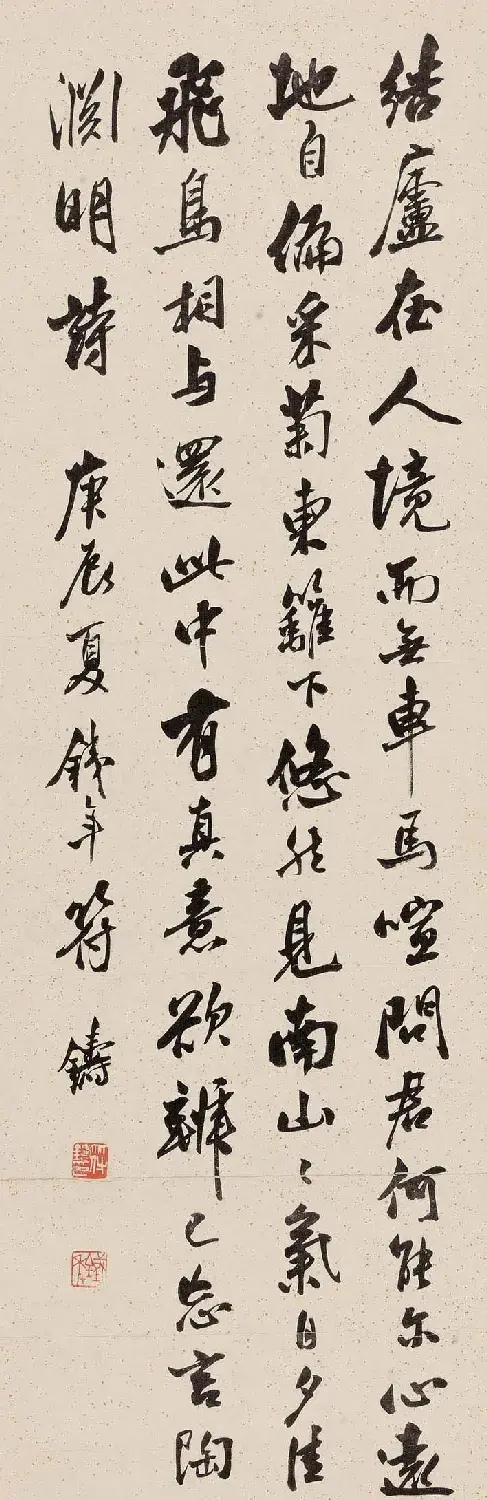 結廬在人境而無車馬喧問君何能尔心遠
地自偏采菊東籬下悠然見南山〻氣日夕佳
飛鳥相与還此中有真意欲辨已忘言陶
淵明詩 庚辰夏鐵年符鑄